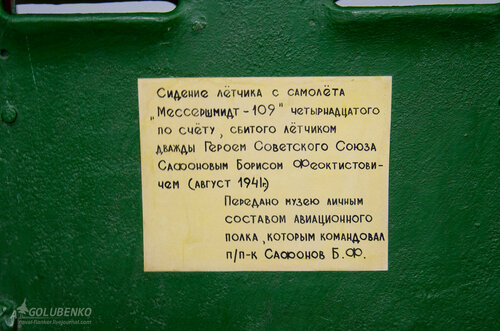 Сидение лётчика с самолёта
„Мессершмидт-109" четырнадцатого
по счёту, сбитого лётчиком
дважды Героем Советского Союза
Сафоновым Борисом Феоктистови-
чем (август 1941г.)
Передано музею личным
составом авиационного
полка, которым командовал
п/п-к Сафонов Б.Ф.
GOLUBENKO
naval-flanker.livejournal.com